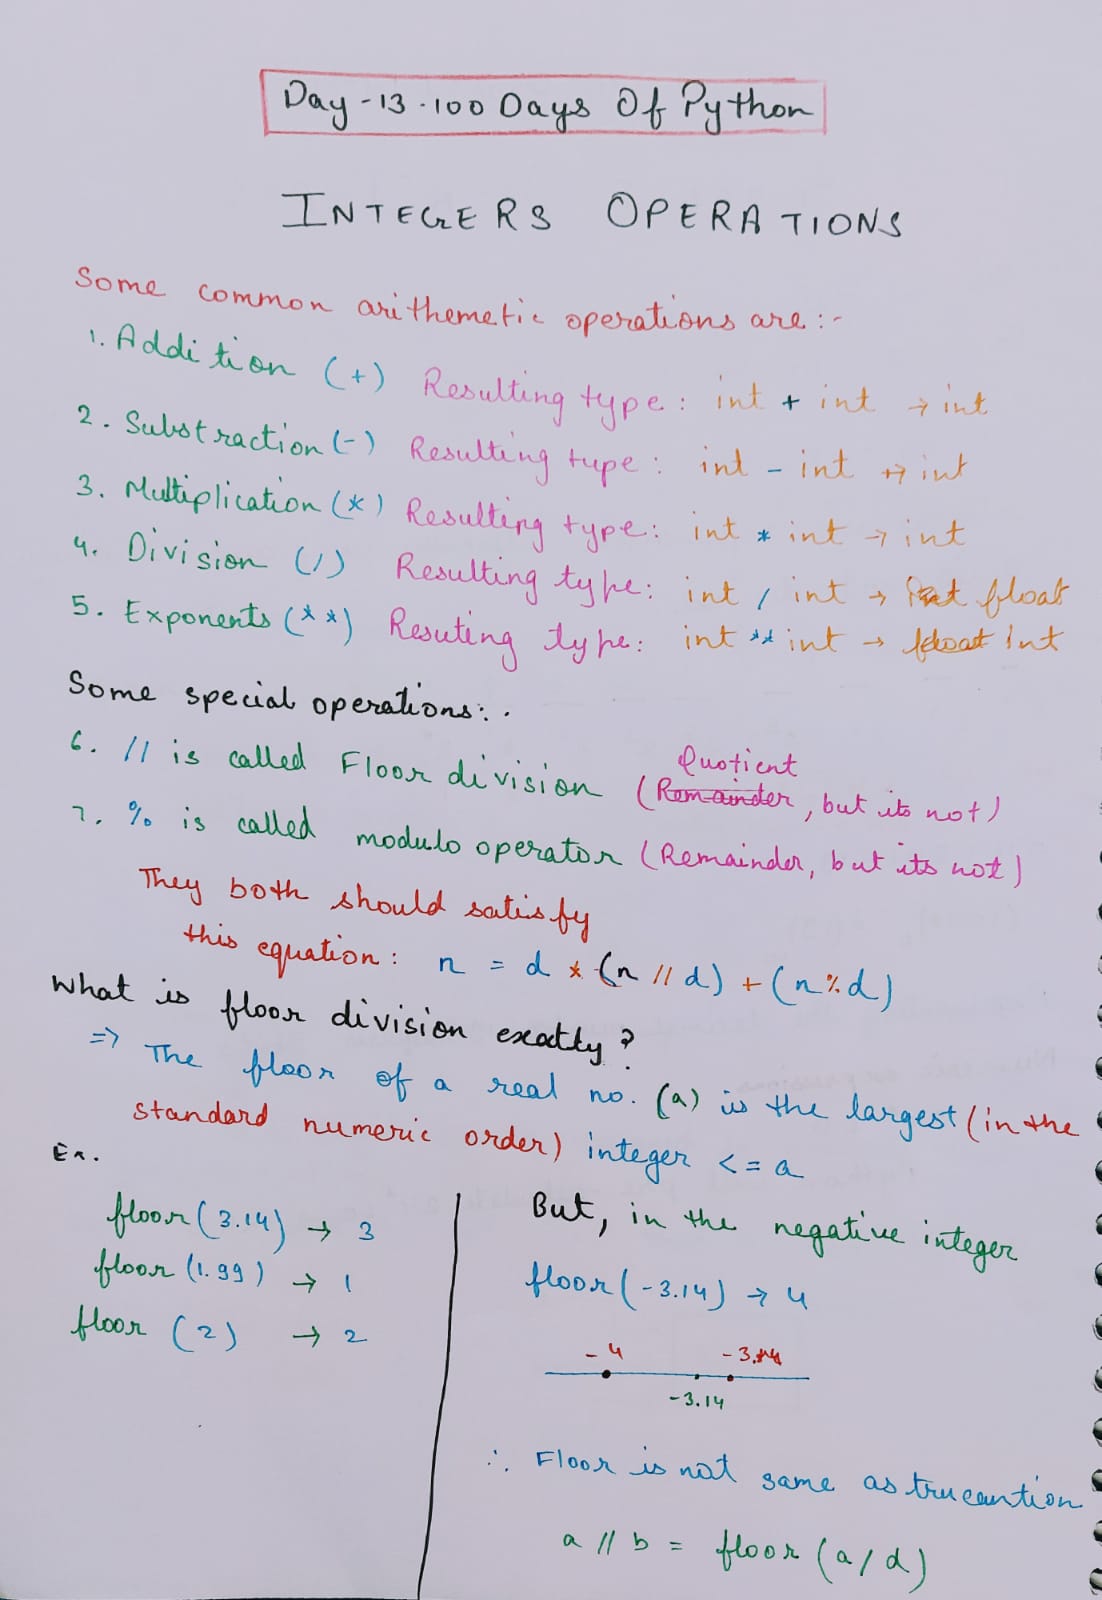 Day-13.100 Days Of Python
INTEGERS OPERATIONS
Some common arithemetic operations are:-
1. Addition (+) Resulting type: int + int → int
2. Substraction (-) Resulting type: int - int → int
3. Multiplication (*) Resulting type: int * int → int
4. Division (/) Resulting type: int / int → float
5. Exponents (**) Resuting type: int ** int → int
Some special operations:.
6. // is called Floor division (Quotient, but its not)
7. % is called modulo operator (Remainder, but its not)
They both should satisfy
this equation: n = d * (n // d) + (n%d)
What is floor division exactly?
⇒ The floor of a real no. (a) is the largest (in the
standard numeric order) integer <= a
Ex.
floor(3.14) → 3
floor(1.99) → 1
floor (2) → 2
But, in the negative integer
floor(-3.14) → 4
-4
-3.14
∴ Floor is not same as trucauntion
a // b = floor (a/d)